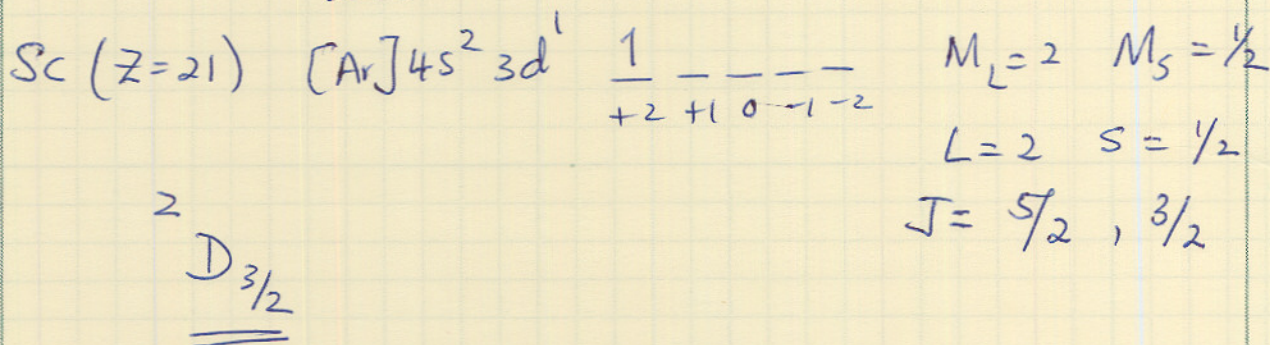 Sc (Z=21) [Ar]4s² 3d¹ 1 _ _ _ _ M_L = 2 M_S = ½
+2 +1 0 -1 -2
L = 2 S = 1/2
J = 5/2 , 3/2
²D₃/₂